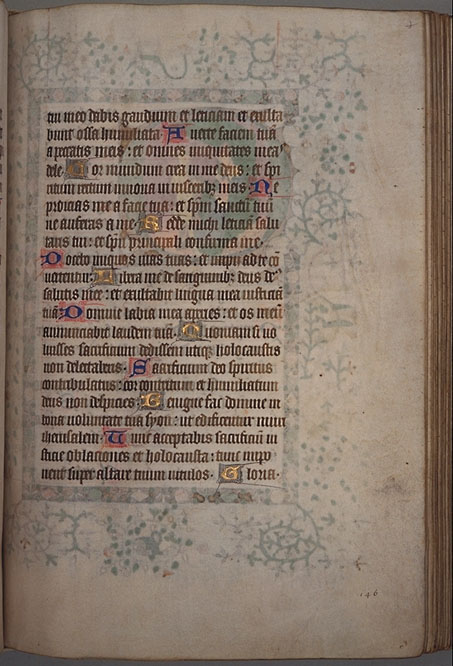 tui meo dabis gaudium et leticiam et exulta
bunt ossa humiliata. Auerte faciem tuā
a peccatis meis: et omnes iniquitates mea
dele. Cor mundum crea in me deus: et spi
ritum rectum innoua in uisceribꝫ meis. Ne
proicias me a facie tua: et spm̄ sanctū tuū
ne auferas a me. Redde michi leticiā salu
taris tui: et spū principali confirma me.
Docebo iniquos uias tuas: et impii ad te cō
uertentur. Libera me de sanguinibꝫ deus de
salutis mee: et exultabit lingua mea iusticiā
tuā. Domine labia mea apries: et os meū
annunciabit laudem tuā. Quoniam si uo
luisses sacrificium dedissem utiqꝫ holocaustis
non delectaberis. Sacrificium deo spiritus
contribulatus: cor contritum et humiliatum
deus non despicies. Benigne fac domine in
bona uoluntate tua syon: ut edificentur muri
iherusalem. Tunc acceptabis sacrificiū iu
sticie oblaciones et holocausta: tunc impo
nent super altare tuum uitulos. Gloria.
146